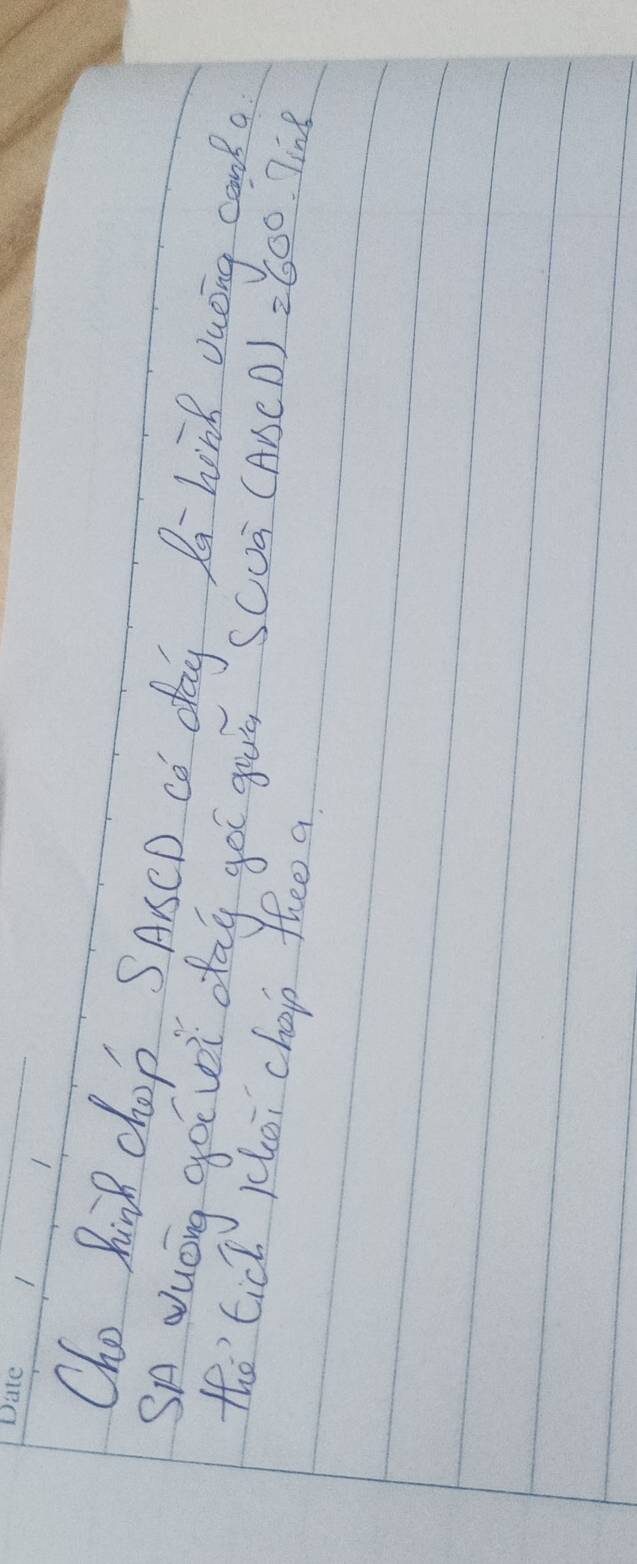 Date / /
Cho hình chóp SABCD có đáy là hình vuông cạnh a.
SA vuông góc với đáy góc giữa SC và (ABCD) = 60°. Tính
thể tích khối chóp theo a.